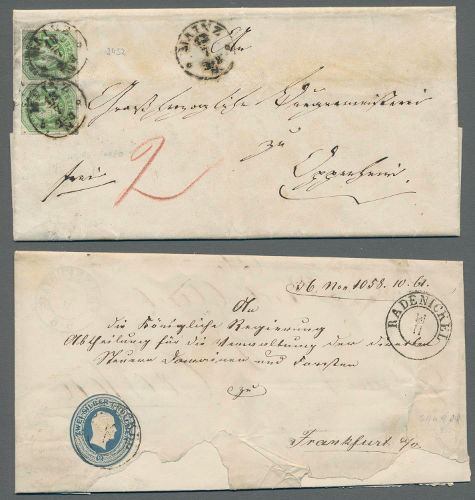 MAINZ
MAINZ
MAINZ
2452
An
Großherzogliche Bürgermeisterei
zu
frei
2
Oppenheim
№ Nov 1058. 10. 61.
RADENICKEL
11
An
die Königliche Regierung
Abtheilung für die Verwaltung der directen
Steuern Domainen und Forsten
zu
Frankfurt a/o.
ZWEI SILBERGROSCHEN